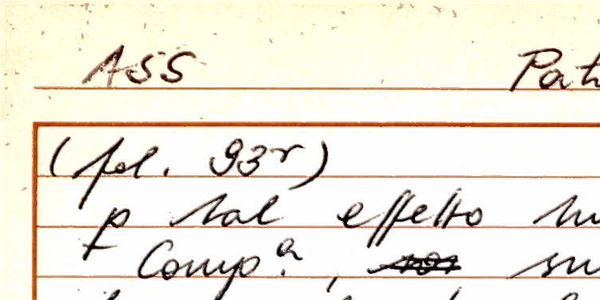 ASS Pat
(fol. 93r)
p tal effetto
Comp.a,